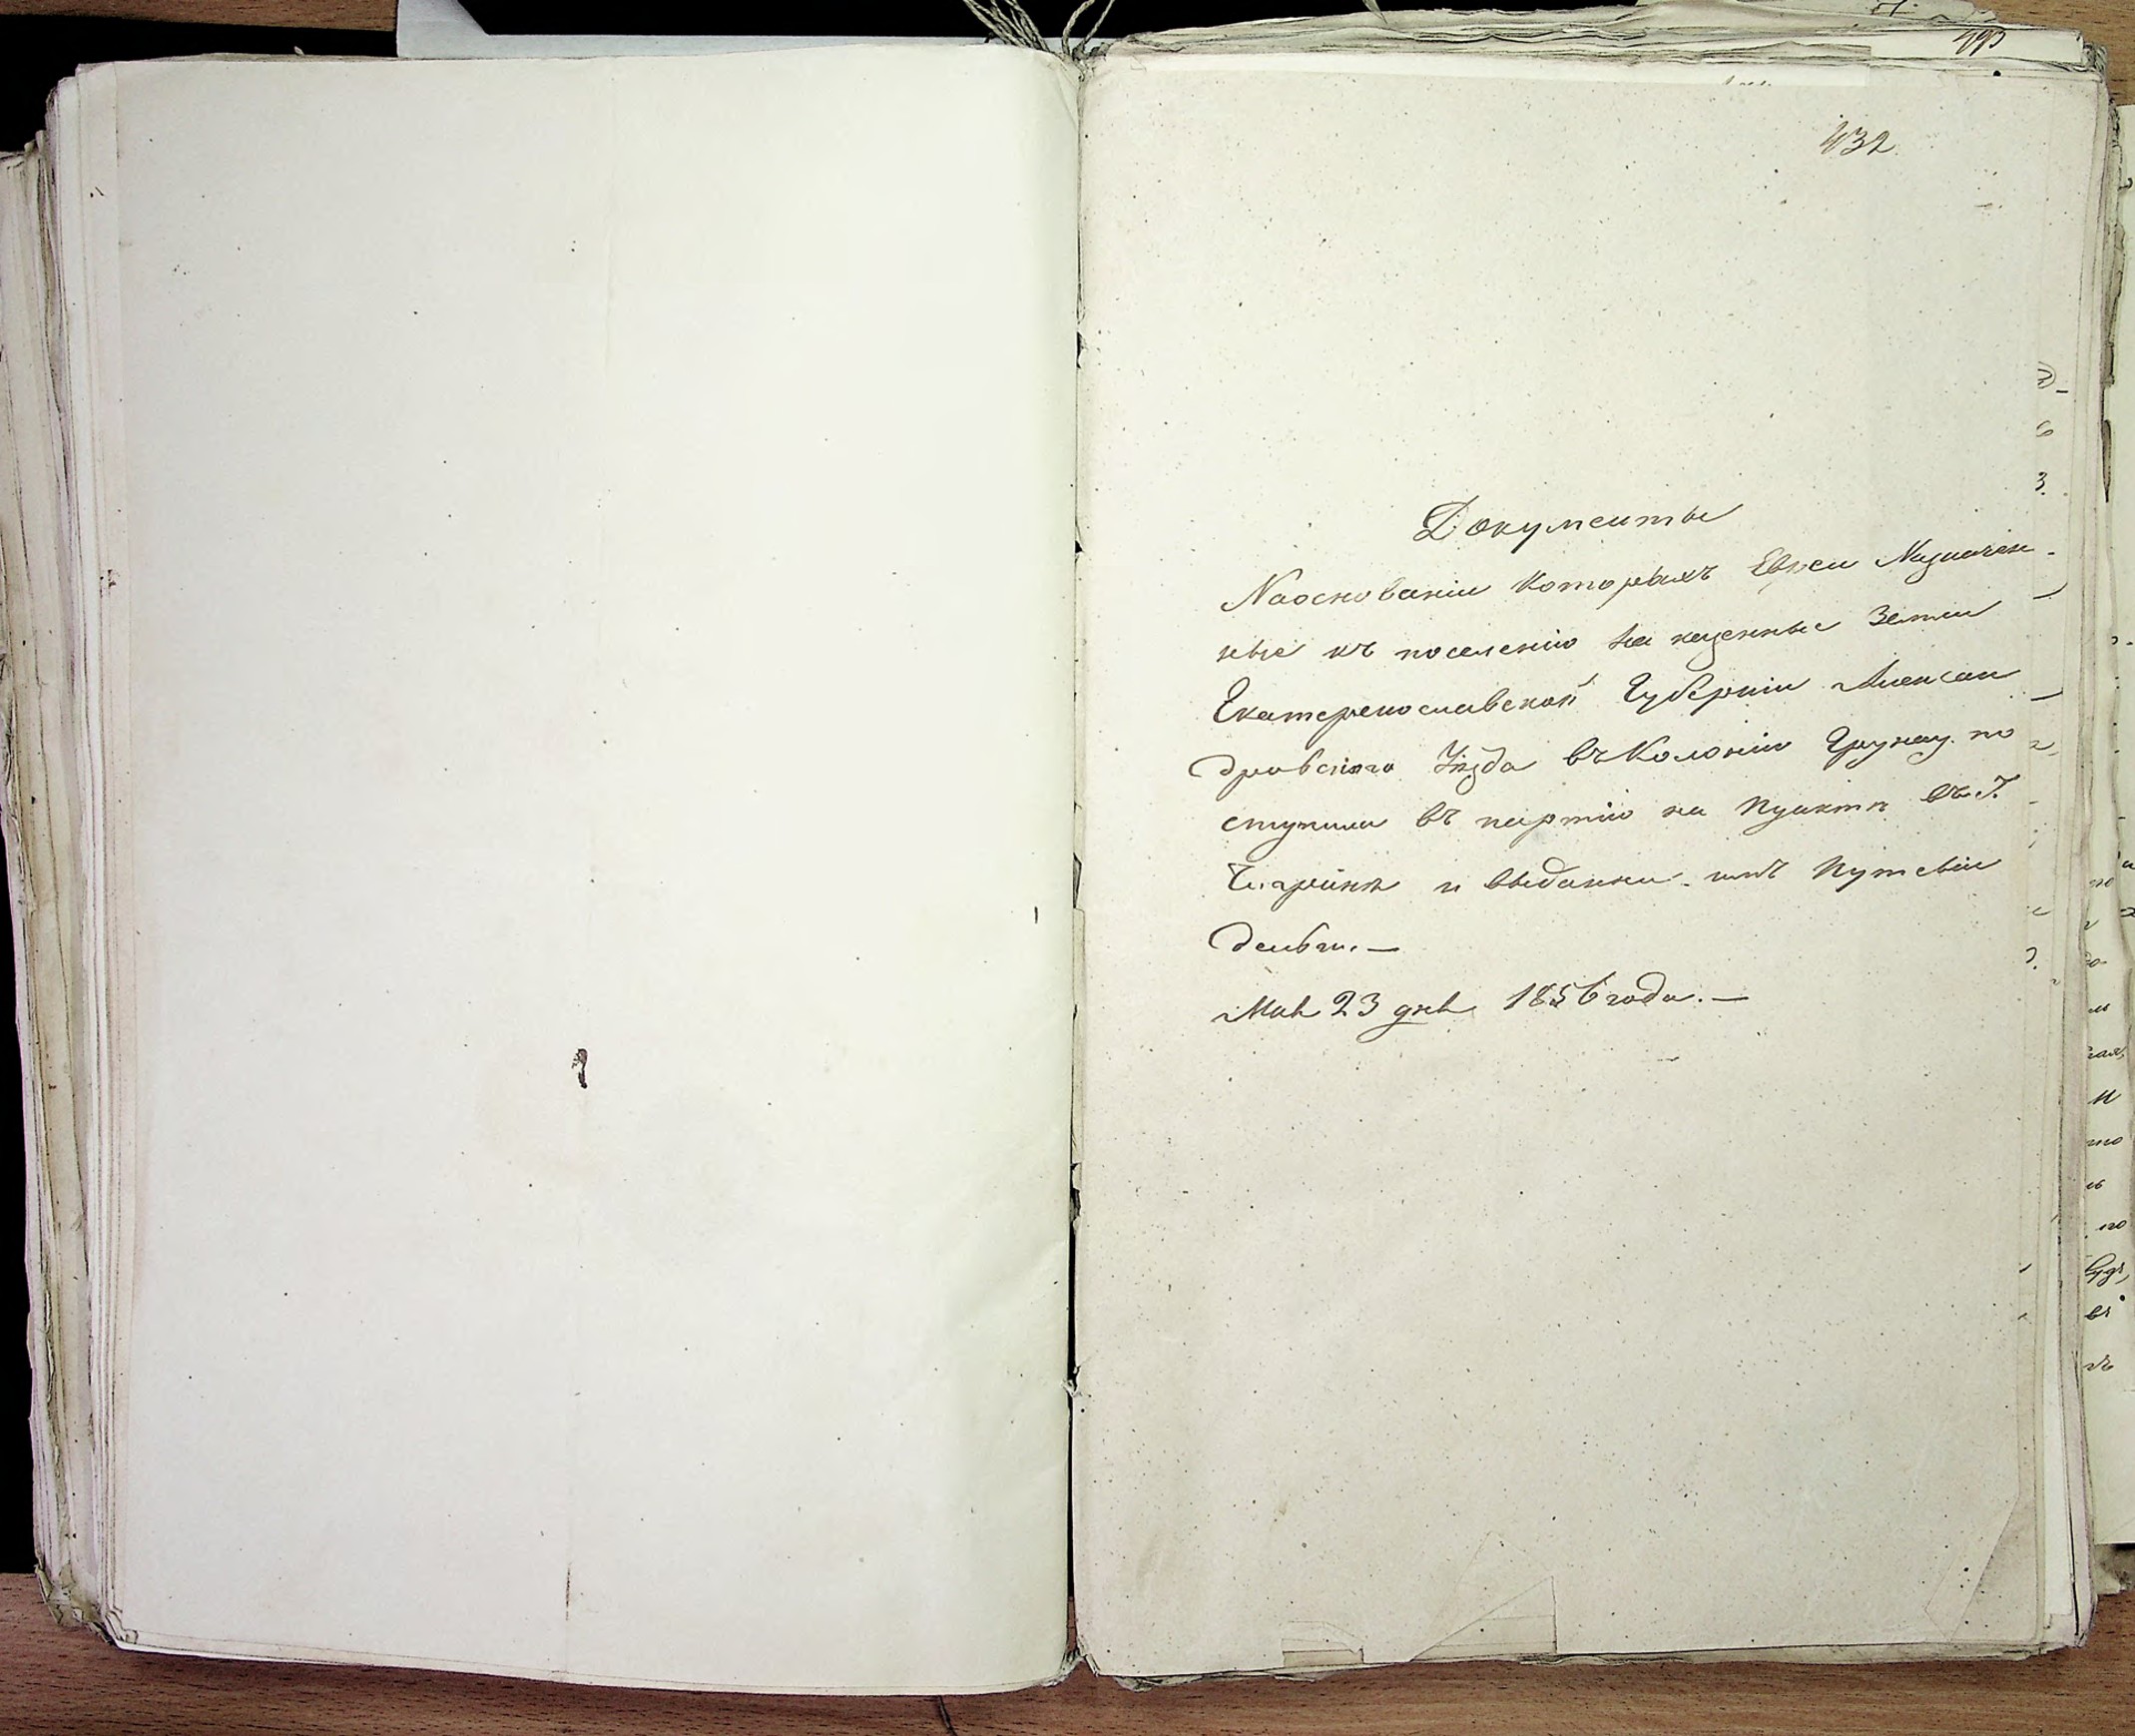 432
Документы
Наосновании которыхъ Евреи Назначен-
ные къ поселению на казенные Земли
Екатеренославской Губернии Алексан
дровского Уезда въ Колонию Грунау по
ступили въ партию на пункте въ Г.
и выданны имъ Путевыи
деньги.—
Мая 23 дня 1856 года.—